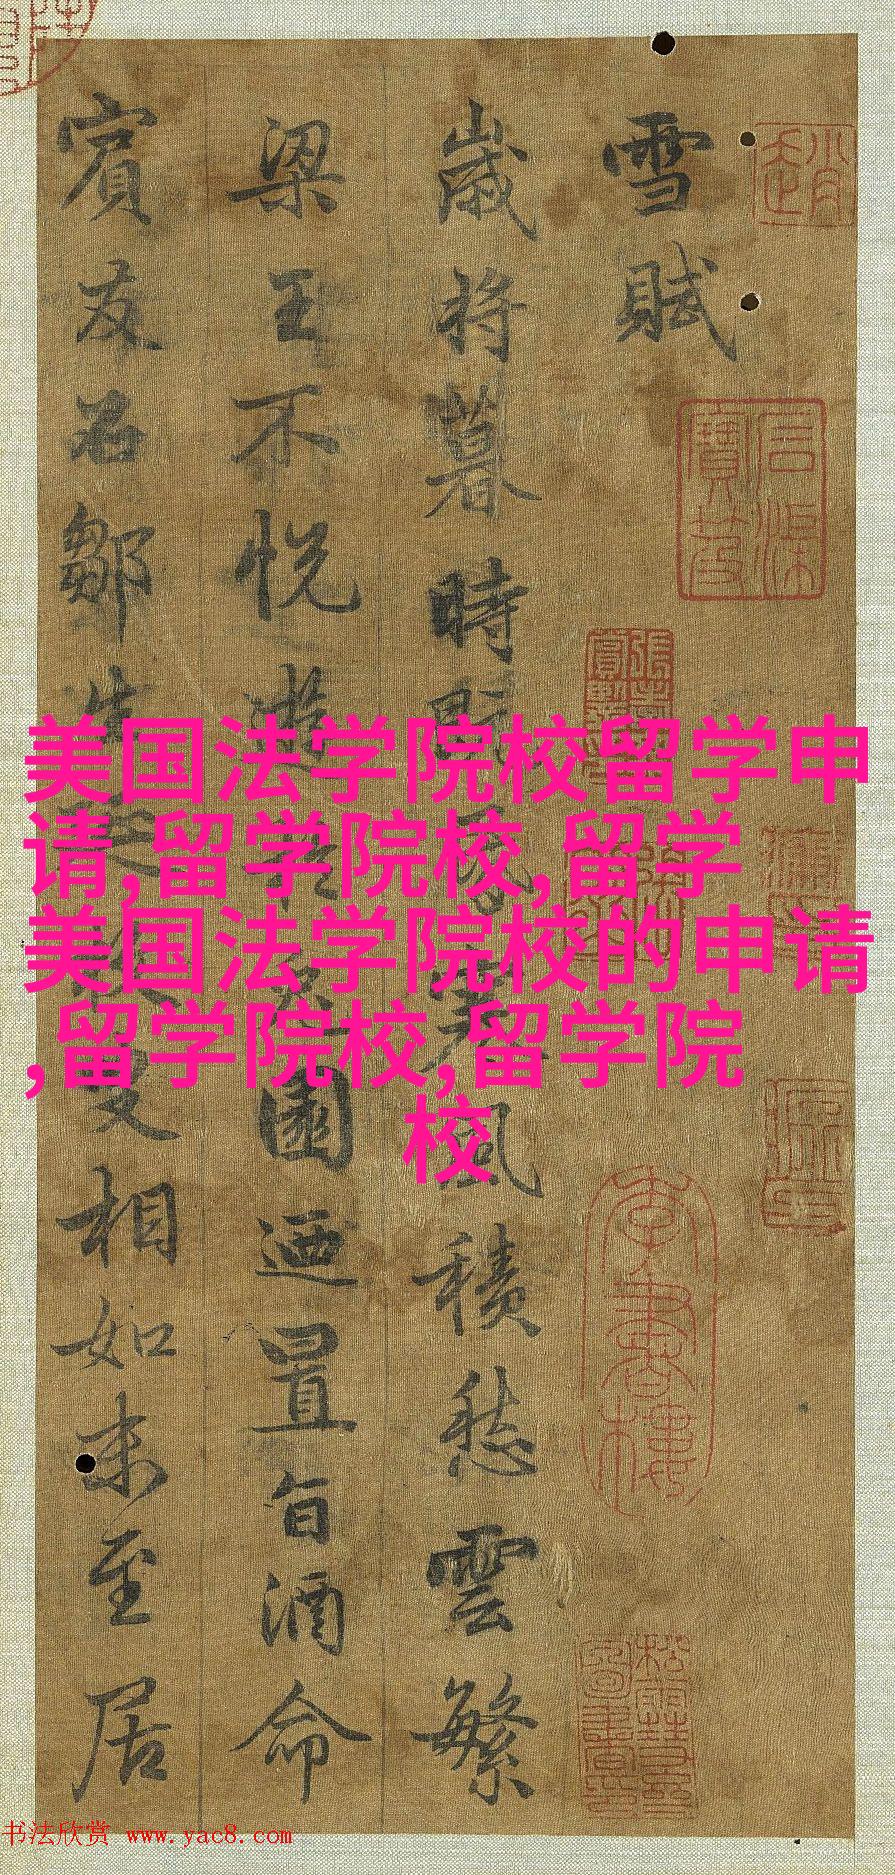 雪賦
歲將暮時既昏寒風積愁雲繁
梁王不悅遊於兔園迺置旨酒命
賓友召鄒生延枚叟相如末至居
美国法学院校留学申
请,留学院校,留学
美国法学院校的申请
,留学院校,留学院
校
书法欣赏 www.yac8.com